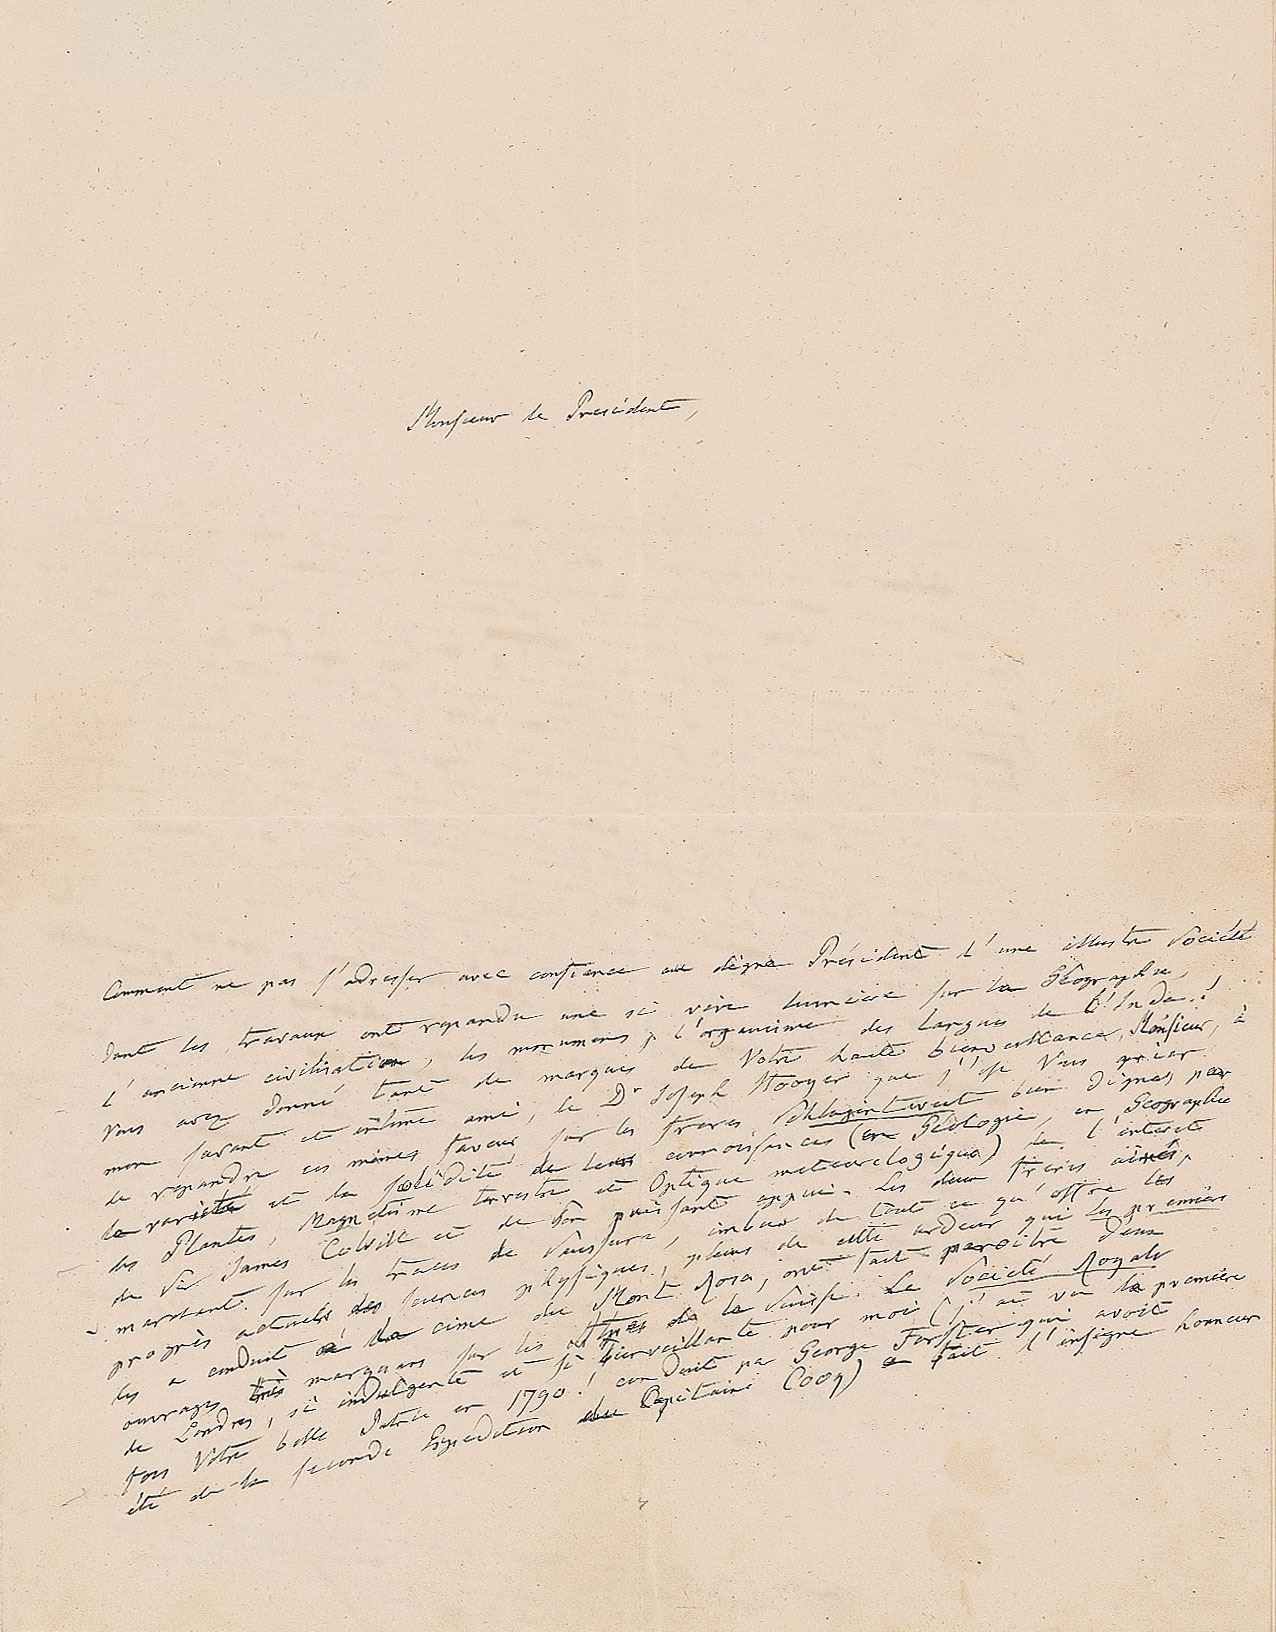 Monsieur le Président,
Comment ne pas s'adresser avec confiance au digne Président d'une illustre Société
dont les travaux ont repandu une si vive lumière sur la Géographie,
l'ancienne civilisation, les monumens, l'organisme des langues de l'Inde!
Vous avez donné tant de marques de Votre haute bienveillance, Monsieur, à
mon savant et intime ami, le Dr Joseph Hooker que j'ose Vous prier
de repandre ces mêmes faveur sur les frères Schlagintweit bien dignes par
la varieté et la solidité de leurs connoissances (en Géologie, en Géographie
des Plantes, Magnetisme terrestre et Optique meteorologique) de l'interêt
de Sir James Colvill et de Son puissant appui. Les deux frères ainés,
marchant sur les traces de Saussure, imbus de tout ce qu'offre les
progrès actuels des sciences physiques, pleins de cette ardeur qui les premiers
les a conduit à la cime du Mont Rosa, ont fait paroitre deux
ouvrages très marquans sur les Alpes de la Suisse. La Société Royale
de Londres, si indulgente et si bienveillante pour moi (j'ai vu la première
fois Votre belle Patrie en 1790, conduit par George Forster qui avoit
été de la seconde Expedition du Capitaine Cook) a fait l'insigne honneur